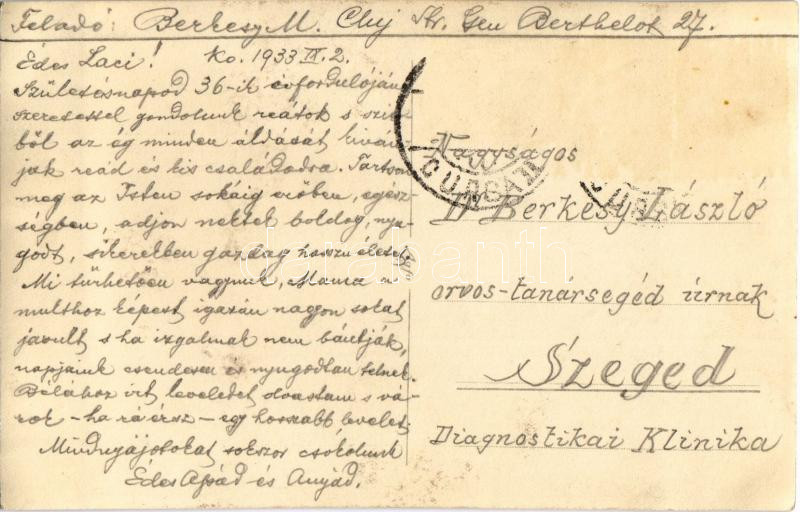 Feladó: Berkesy M. Cluj Str. Gen Berthelot 27.
Édes Laci! Ko. 1933 IX. 2.
Születésnapod 36-ik évfordulóján
szeretettel gondolunk reátok s szív
ből az ég minden áldását kiván
juk reád és kis családodra. Tartson
meg az Isten sokáig erőben, egész-
ségben, adjon nektek boldog, nyu
godt, sikerekben gazdag hosszu életet.
Mi türhetően vagyunk, Mama a
multhoz képest igazán nagyon sokat
javult s ha izgalmak nem bántják,
napjaink csendesen és nyugodtan telnek.
Bélához irt leveledet olvastam s vá-
rok - ha ráérsz - egy hosszabb levelet.
Mindnyájotokat sokszor csókolunk
Édes Apád és Anyád.
Nagyságos
Dr Berkesy László
orvos-tanársegéd úrnak
Szeged
Diagnostikai Klinika
darabanth